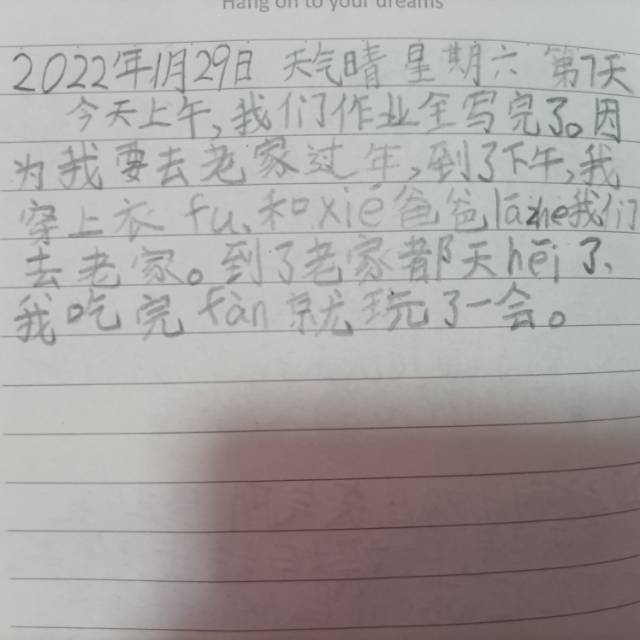 Hang on to your dreams
2022年1月29日 天气晴 星期六 第7天
今天上午,我们作业全写完了。因
为我要去老家过年,到了下午,我
穿上衣fu、和xié爸爸lāzhe我们
去老家。到了老家都天hēi了、
我吃完fàn就玩了一会。